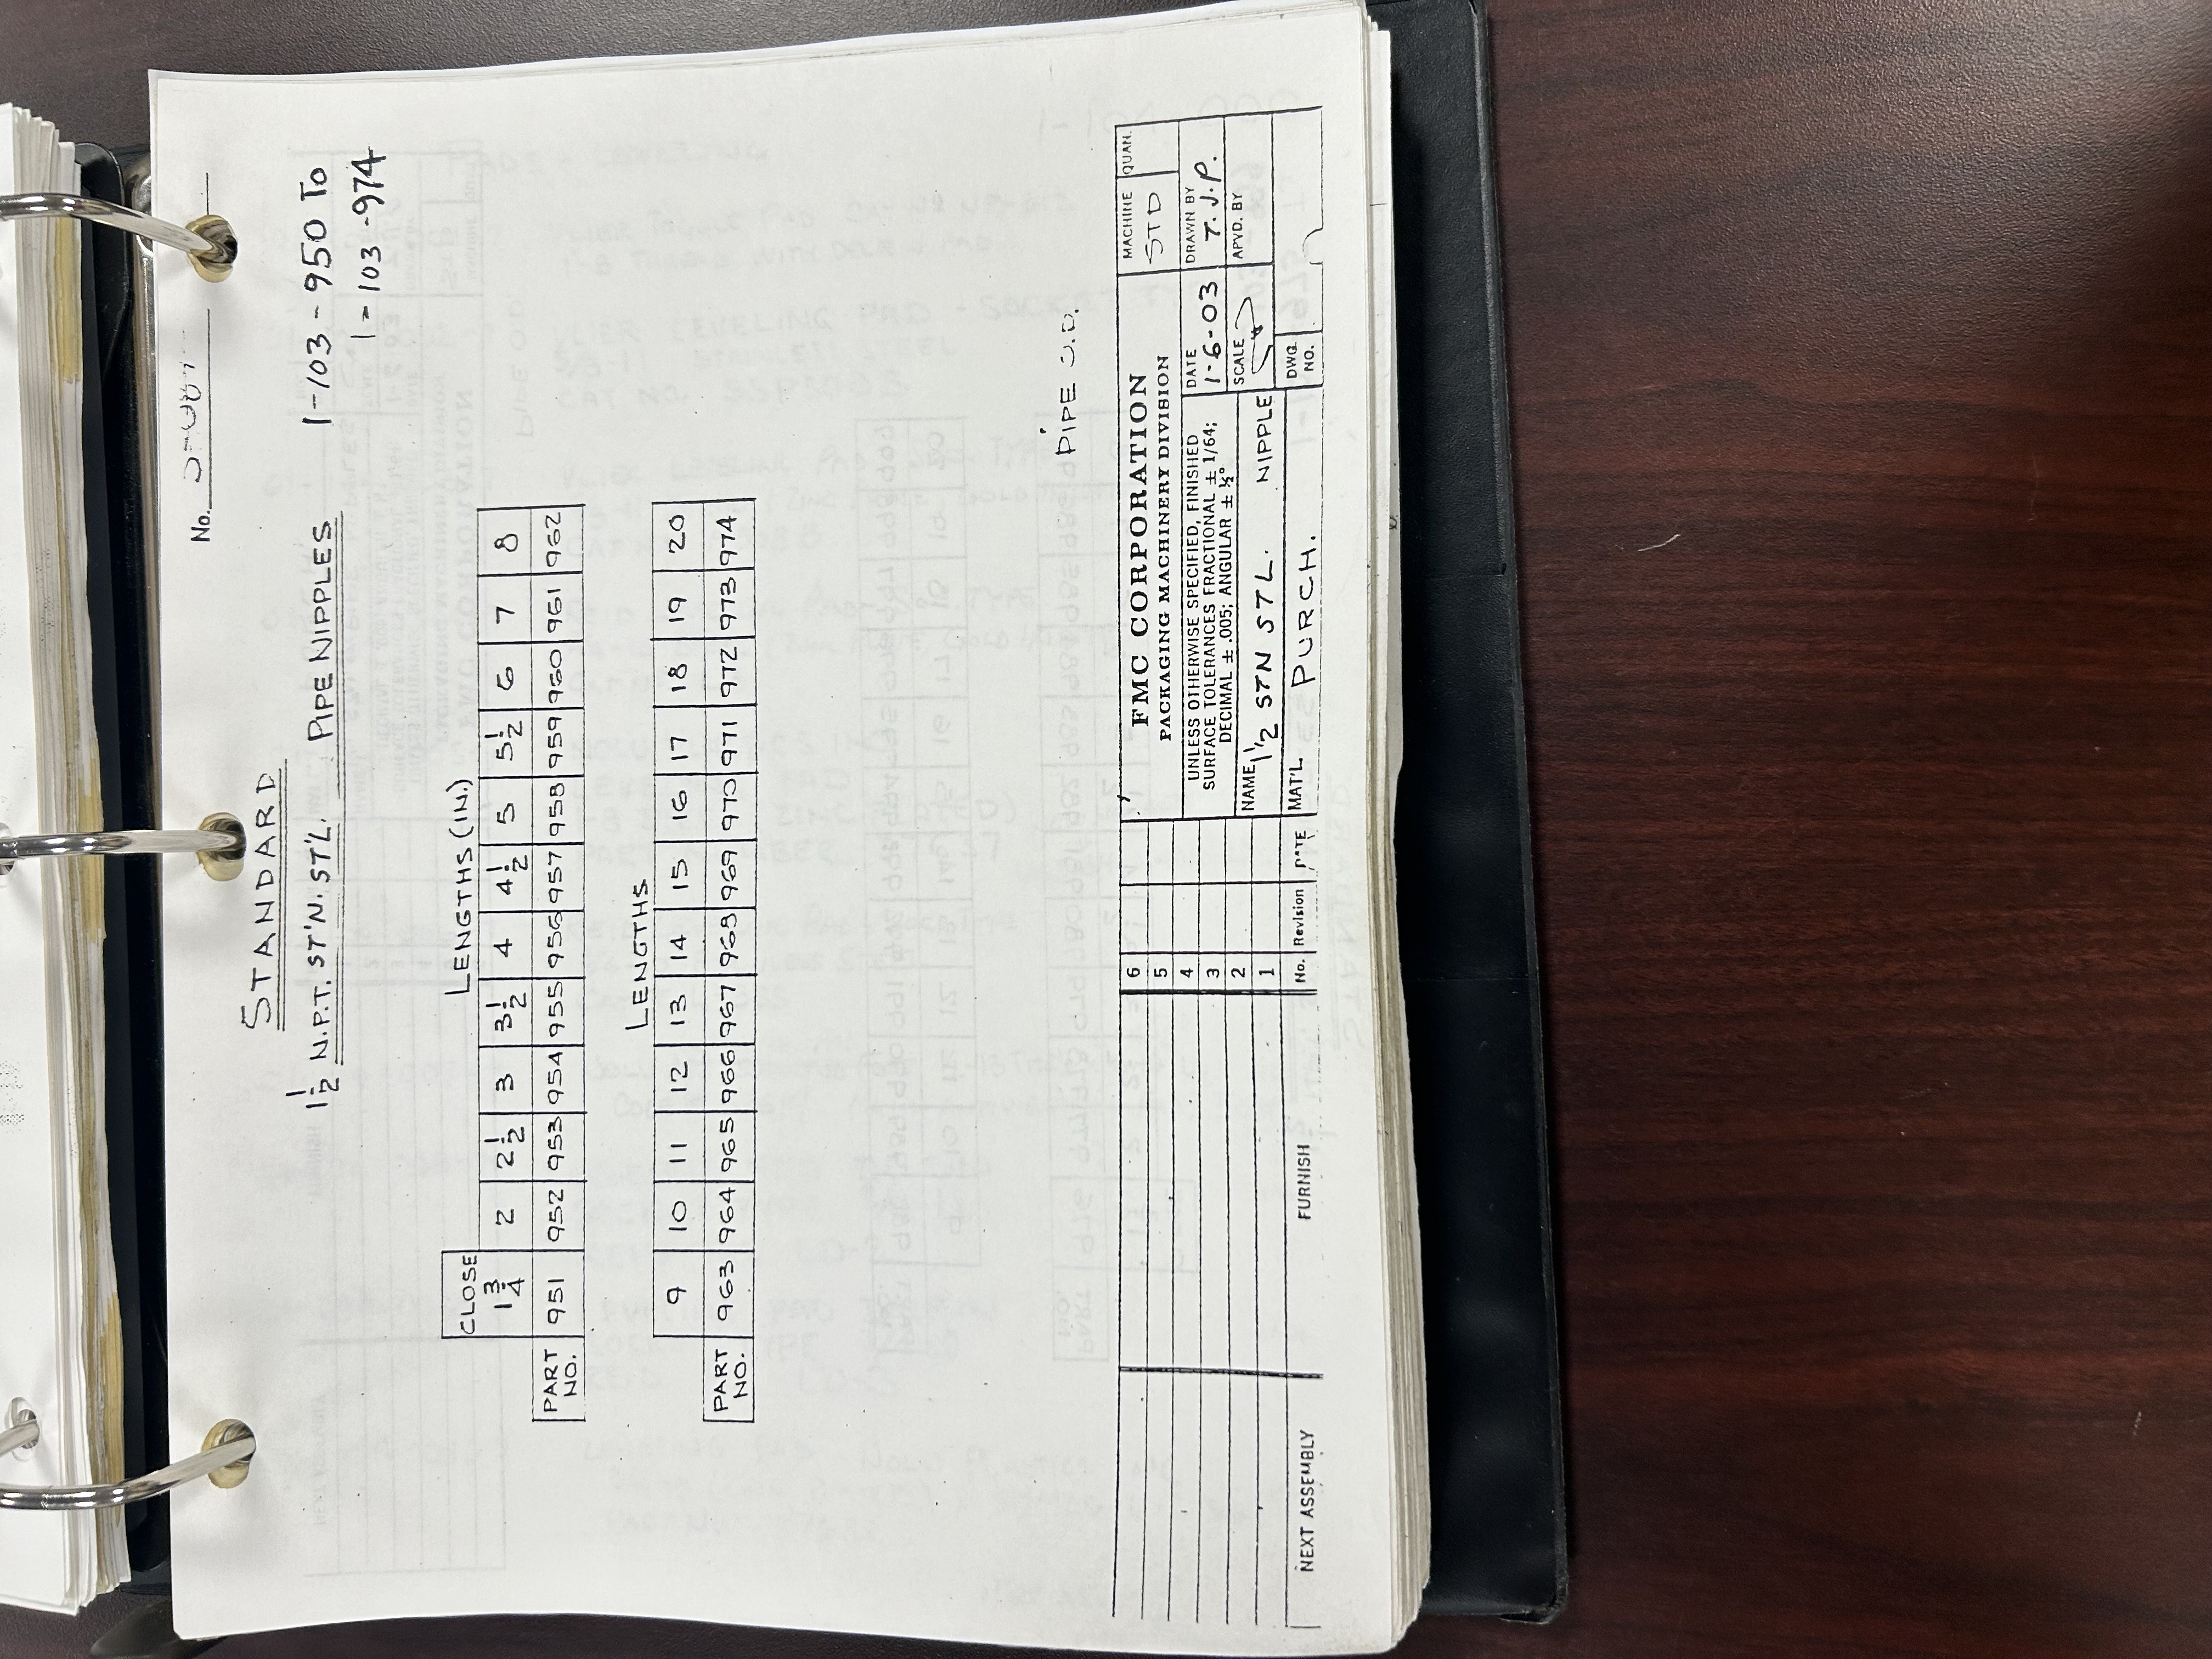 No.
STANDARD
1 1/2 N.P.T. ST'N. ST'L. PIPE NIPPLES
1-103-950 TO
1-103-974
CLOSE LENGTHS (IN.)
1 3/4 2 2 1/2 3 3 1/2 4 4 1/2 5 5 1/2 6 7 8
PART NO. 951 952 953 954 955 956 957 958 959 960 961 962
LENGTHS
9 10 11 12 13 14 15 16 17 18 19 20
PART NO. 963 964 965 966 967 968 969 970 971 972 973 974
PIPE O.D.
6
5
4
3
2
1
NEXT ASSEMBLY FURNISH No. Revision DATE
FMC CORPORATION
PACKAGING MACHINERY DIVISION
MACHINE
STD
QUAN.
UNLESS OTHERWISE SPECIFIED, FINISHED
SURFACE TOLERANCES FRACTIONAL ± 1/64;
DECIMAL ± .005; ANGULAR ± ½°
DATE
1-6-03
DRAWN BY
T.J.P.
NAME 1 1/2 STN STL. NIPPLE
SCALE
APVD. BY
MAT'L PURCH.
DWG.
NO.